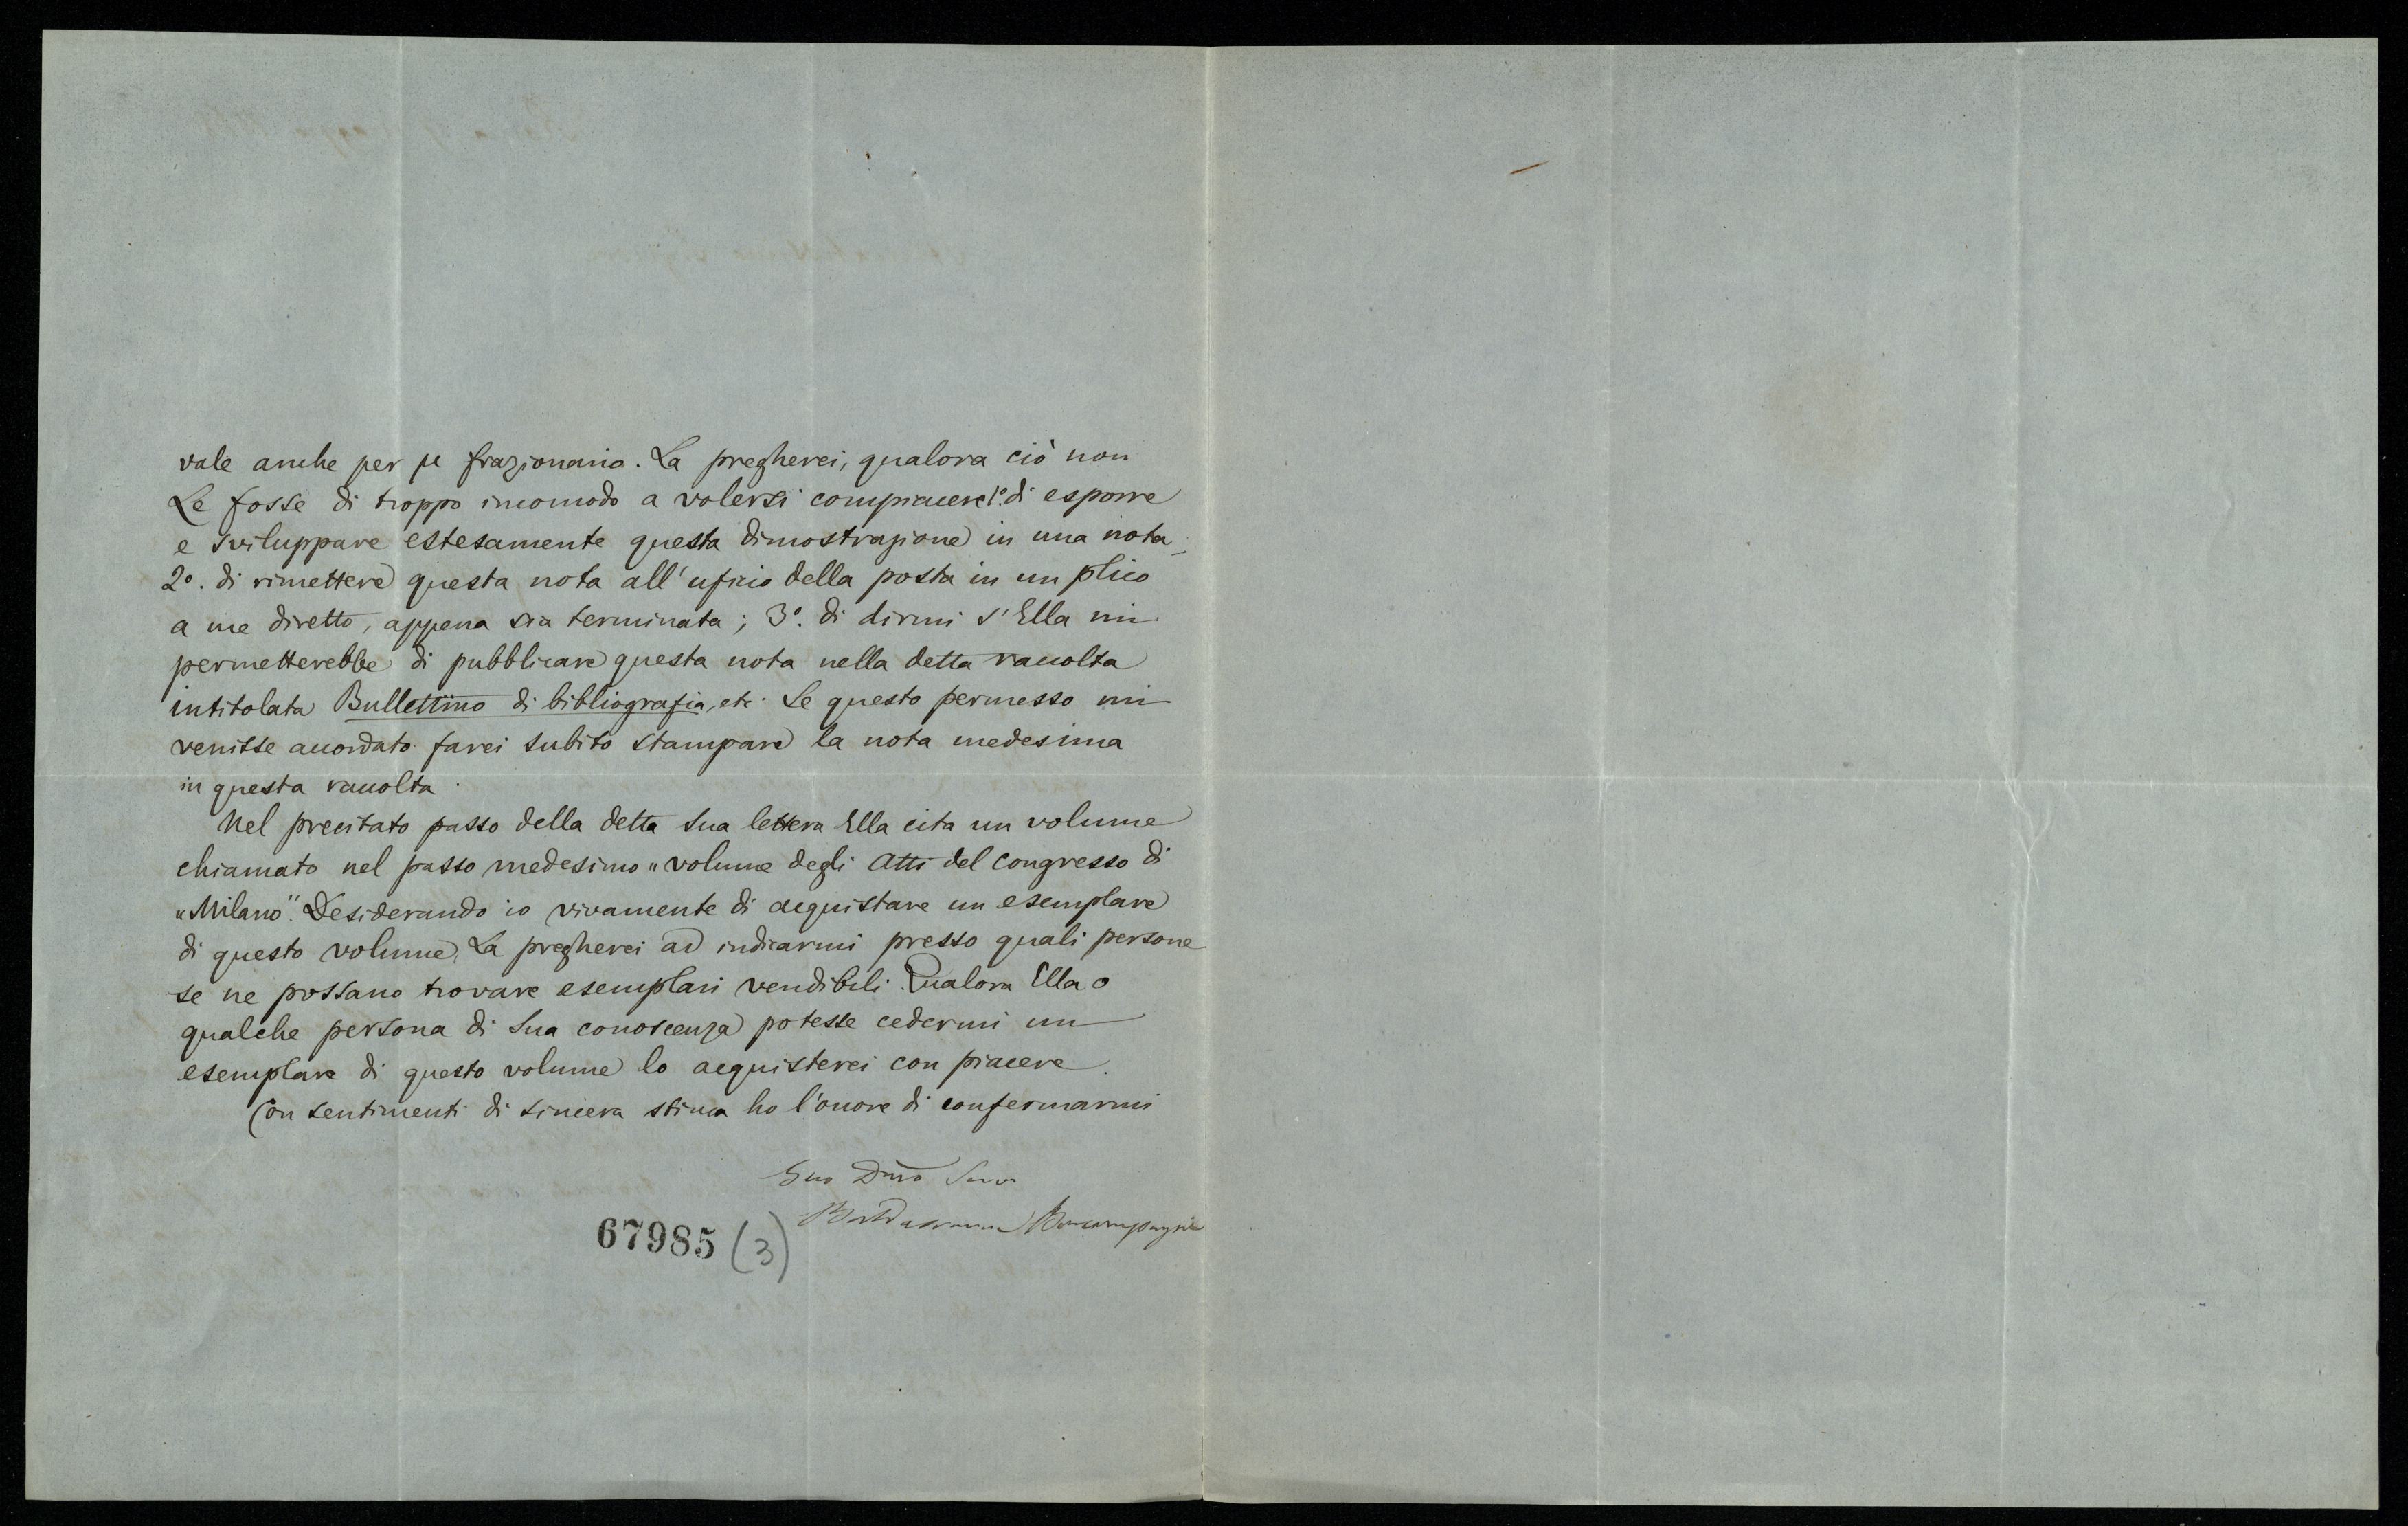 vale anche per μ frazionario. La pregherei, qualora ciò non
Le fosse di troppo incomodo a volersi compiacere 1º. di esporre
e sviluppare estesamente questa dimostrazione in una nota;
2º. di rimettere questa nota all'uficio della posta in un plico
a me diretto, appena sia terminata; 3º. di dirmi s'Ella mi
permetterebbe di pubblicare questa nota nella detta raccolta
intitolata Bullettino di bibliografia, etc. Se questo permesso mi
venisse accordato farei subito stampare la nota medesima
in questa raccolta.
Nel precitato passo della detta sua lettera Ella cita un volume
chiamato nel passo medesimo „volume degli Atti del congresso di
„Milano". Desiderando io vivamente di acquistare un esemplare
di questo volume, La pregherei ad indicarmi presso quali persone
se ne possano trovare esemplari vendibili. Qualora Ella o
qualche persona di sua conoscenza potesse cedermi un
esemplare di questo volume lo acquisterei con piacere.
Con sentimenti di sincera stima ho l'onore di confermarmi
Suo Dmo Servo
Baldassarre Boncompagni
67985 (3)